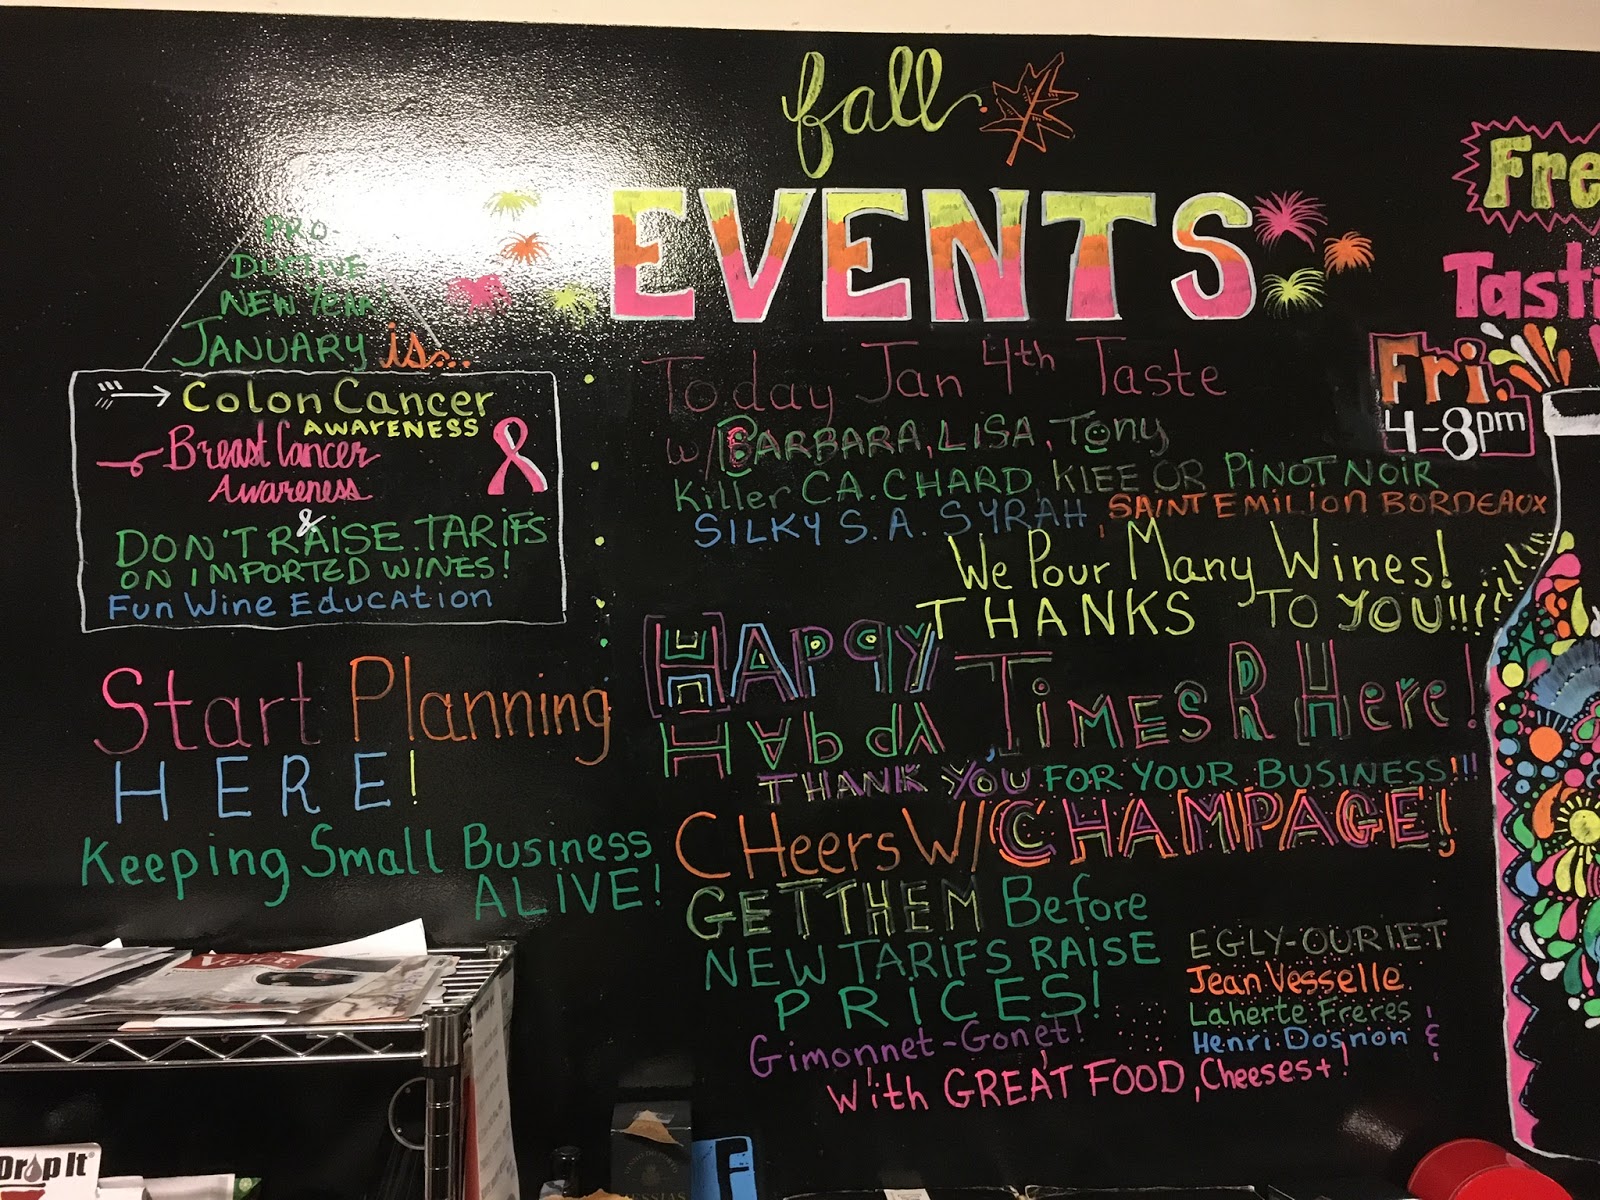 fall
EVENTS
PRO-
DUCTIVE
NEW YEAR!
JANUARY is...
Colon Cancer
AWARENESS
Breast Cancer
Awareness
&
DON'T RAISE TARIFS
ON IMPORTED WINES!
FUN WINE EDUCATION
Start Planning
HERE!
Keeping Small Business
ALIVE!
Today Jan 4th Taste
w/ BARBARA, LISA, Tony
Killer CA. CHARD, KIEE OR PINOT NOIR
SILKY S.A. SYRAH, SAINT EMILION BORDEAUX
We Pour Many Wines!
THANKS TO YOU!!!!
HAPPY
HAPPY TIMES R Here!
THANK YOU FOR YOUR BUSINESS!!!
CHeers W/ CHAMPAGE!
GET THEM Before
NEW TARIFS RAISE
PRICES!
Gimonnet-Gonet!
EGLY-OURIET
Jean Vesselle
Laherte Freres
Henri Dosnon &
with GREAT FOOD, Cheeses+!
Fre
Tasti
Fri.
4-8pm
VOICE
Drop It